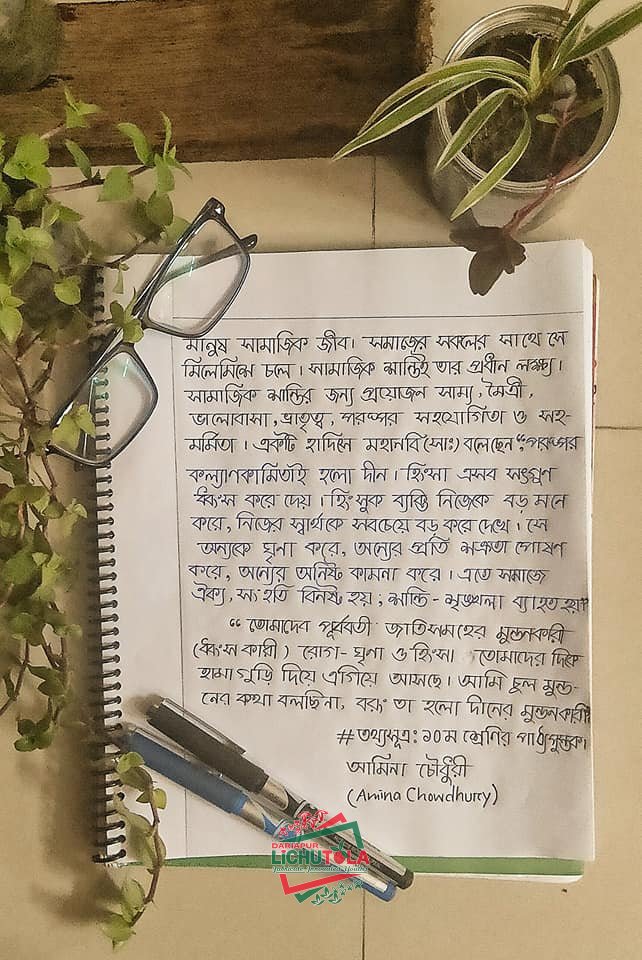 মানুষ সামাজিক জীব। সমাজের সকলের সাথে সে
মিলেমিশে চলে। সামাজিক শান্তিই তার প্রধান লক্ষ্য।
সামাজিক শান্তির জন্য প্রয়োজন সাম্য, মৈত্রী,
ভালোবাসা, ভ্রাতৃত্ব, পরস্পর সহযোগিতা ও সহ-
মর্মিতা। একটি হাদিসে মহানবি (সাঃ) বলেছেন "পরস্পর
কল্যাণকামিতাই হলো দীন। হিংসা এসব সৎগুণ
ধ্বংস করে দেয়। হিংসুক ব্যক্তি নিজেকে বড় মনে
করে, নিজের স্বার্থকে সবচেয়ে বড় করে দেখে। সে
অন্যকে ঘৃনা করে, অন্যের প্রতি শত্রুতা পোষণ
করে, অন্যের অনিষ্ট কামনা করে। এতে সমাজে
ঐক্য, সংহতি বিনষ্ট হয়, শান্তি-শৃঙ্খলা ব্যাহত হয়"
"তোমাদের পূর্ববর্তী জাতিসমূহের মুন্ডনকারী
(ধ্বংসকারী) রোগ-ঘৃনা ও হিংসা তোমাদের দিকে
হামাগুড়ি দিয়ে এগিয়ে আসছে। আমি চুল মুন্ড-
নের কথা বলছিনা, বরং তা হলো দীনের মুন্ডনকারী"
# তথ্যসূত্র: ১০ম শ্রেণির পাঠ্যপুস্তক।
আমিনা চৌধুরী
(Amina Chowdhury)
DARIAPUR
LiCHUTOLA